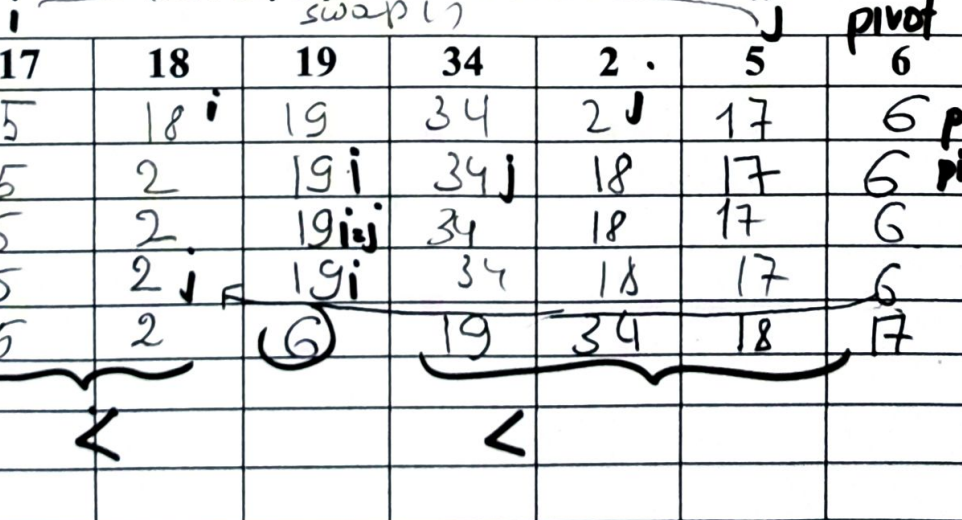 i swap() j pivot
17 18 19 34 2 . 5 6
5 18 i 19 34 2 j 17 6 p
5 2 19 i 34 j 18 17 6 pi
5 2 19 i=j 34 18 17 6
5 2 j 19 i 34 18 17 6
5 2 6 19 34 18 17
< <